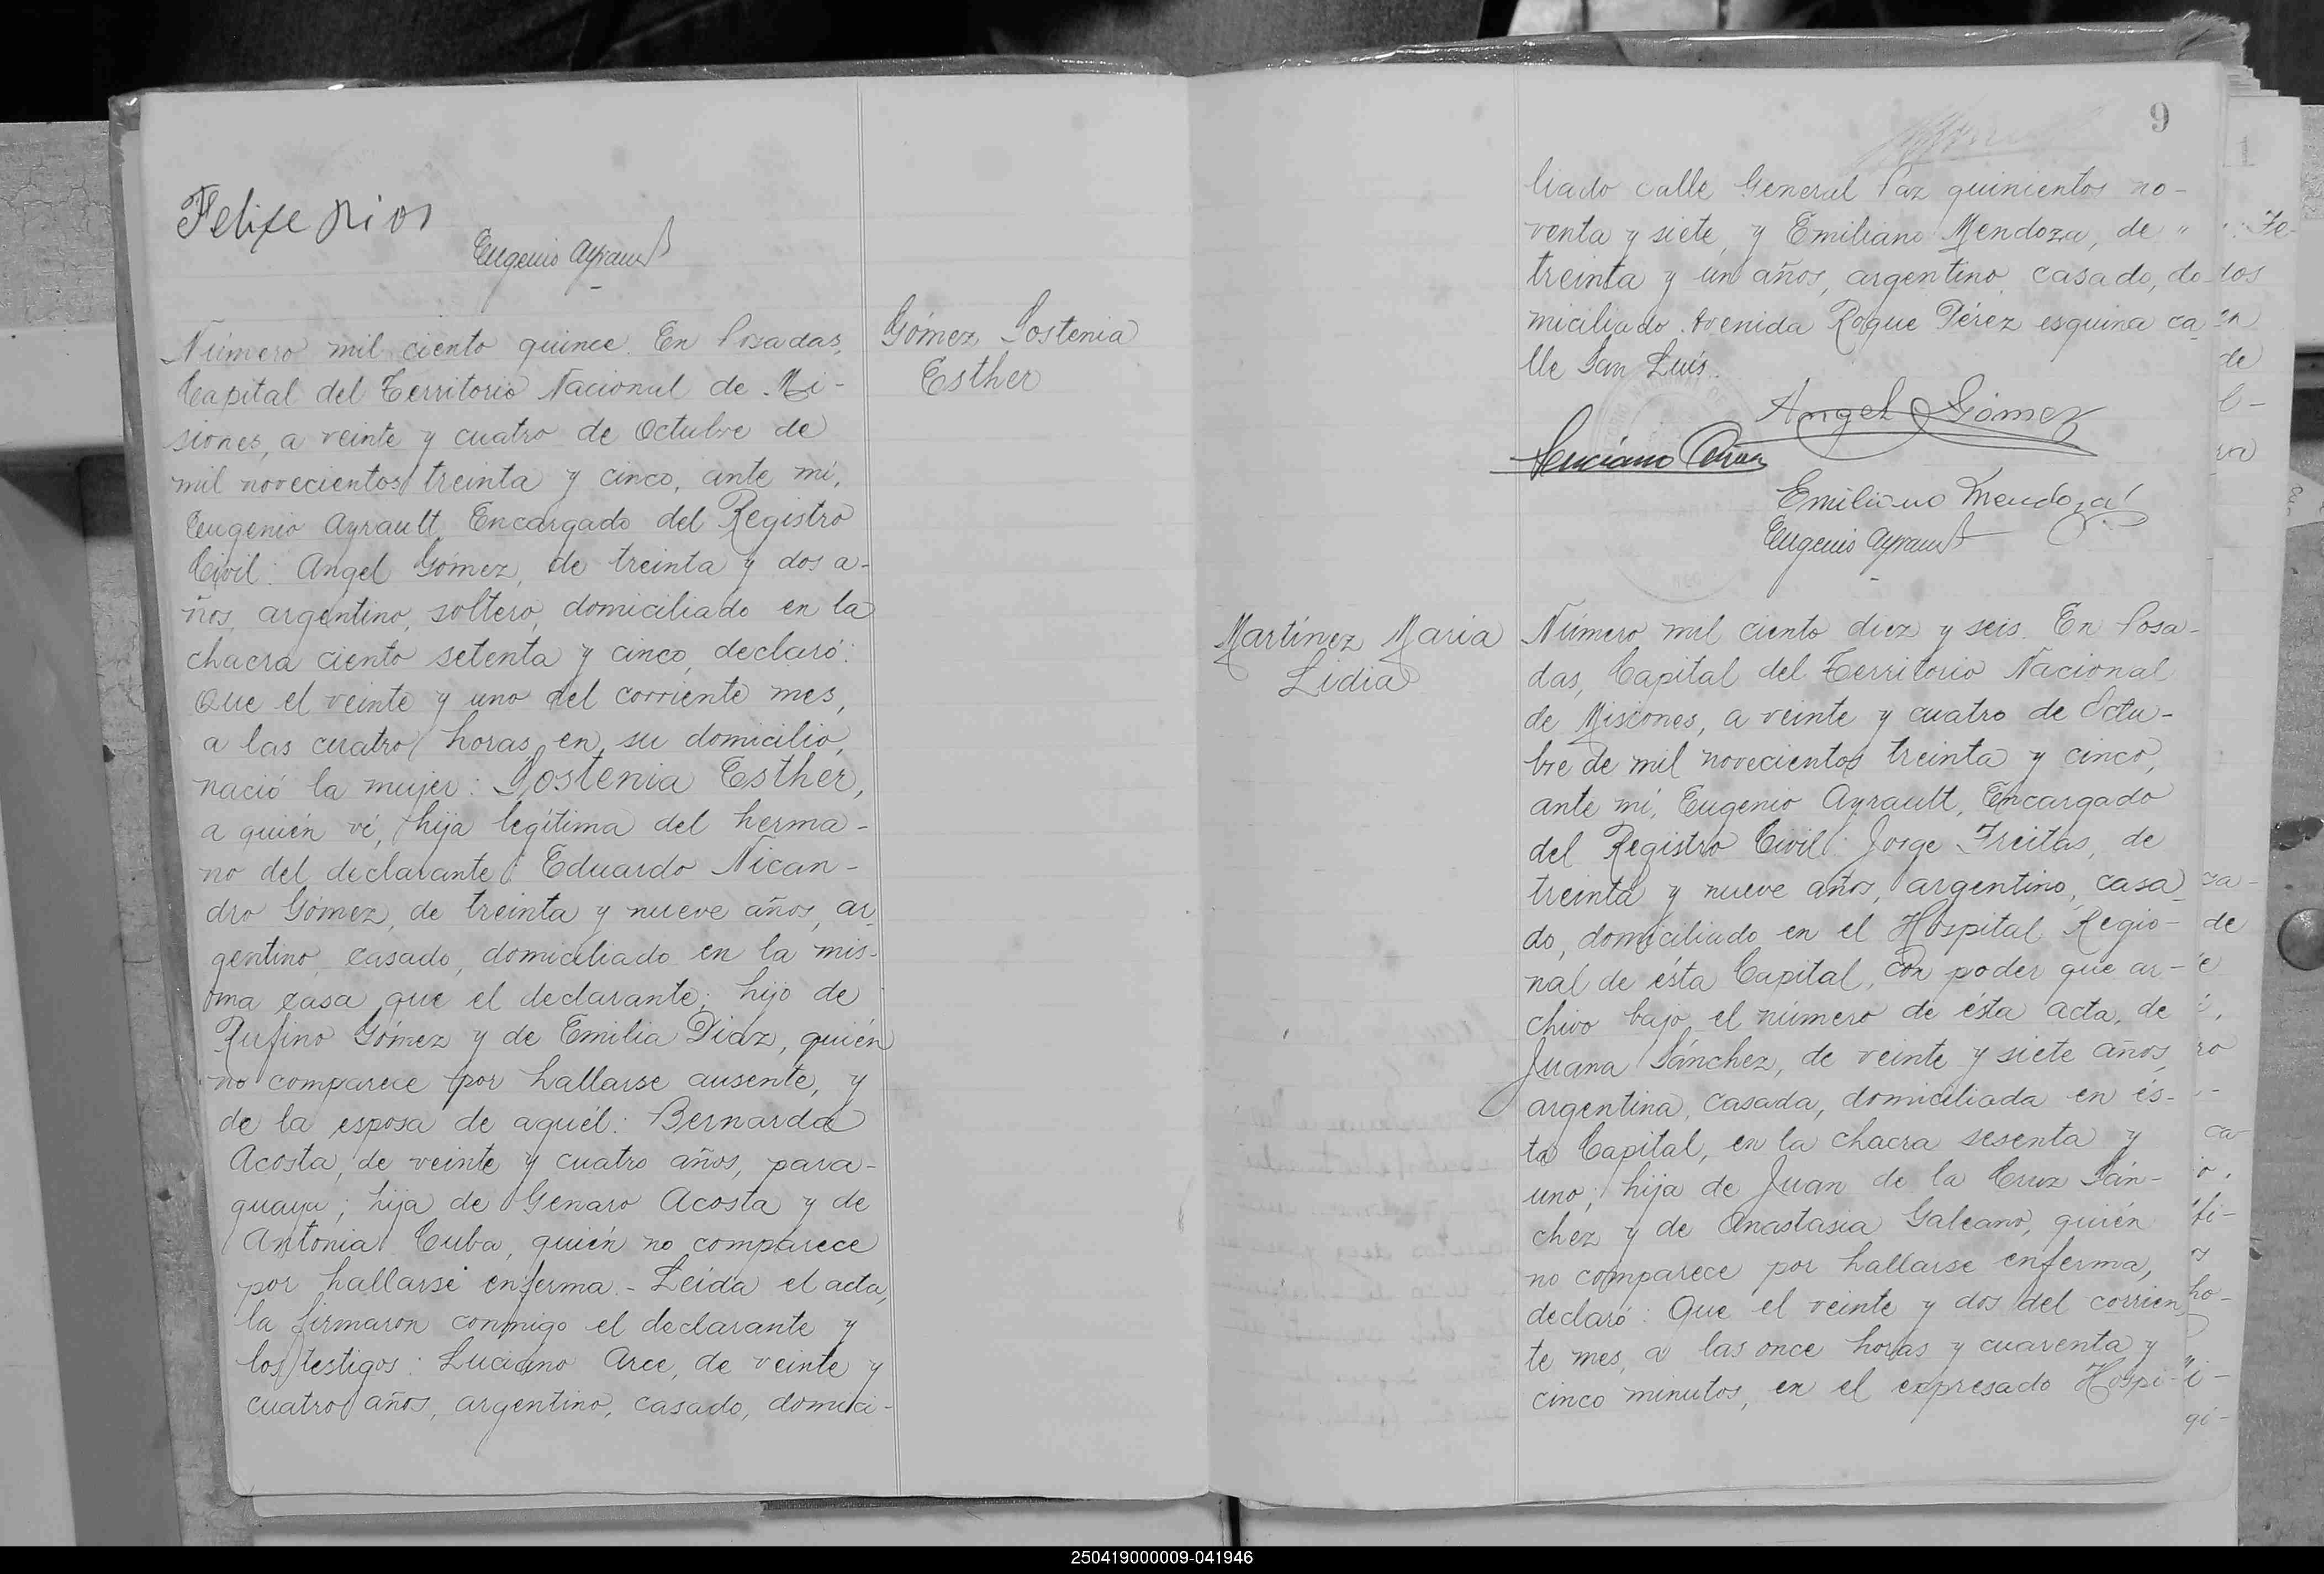 Felipe Rios
Eugenio Ayrault
Gómez Sostenia
Esther
Número mil ciento quince. En Posadas,
Capital del Territorio Nacional de Mi-
siones, a veinte y cuatro de Octubre de
mil novecientos treinta y cinco, ante mí,
Eugenio Ayrault, Encargado del Registro
Civil: Angel Gómez, de treinta y dos a-
ños, argentino, soltero, domiciliado en la
chacra ciento setenta y cinco, declaró:
Que el veinte y uno del corriente mes,
a las cuatro horas, en su domicilio,
nació la mujer: Sostenia Esther,
a quién ví, hija legítima del herma-
no del declarante: Eduardo Nican-
dro Gómez, de treinta y nueve años, ar-
gentino, casado, domiciliado en la mis-
ma casa que el declarante; hijo de
Rufino Gómez y de Emilia Diaz, quién
no comparece por hallarse ausente, y
de la esposa de aquél: Bernarda
Acosta, de veinte y cuatro años, para-
guaya; hija de Genaro Acosta y de
Antonia Cuba, quién no comparece
por hallarse enferma.- Leída el acta,
la firmaron conmigo el declarante y
los testigos: Luciano Arce, de veinte y
cuatro años, argentino, casado, domici-
9
liado calle General Paz quinientos no-
venta y siete, y Emiliano Mendoza, de "
treinta y un años, argentino, casado, do-
miciliado Avenida Roque Pérez esquina ca-
lle San Luís.
Angel Gómez
Luciano Arce
Emiliano Mendoza
Eugenio Ayrault
Martínez Maria
Lidia
Número mil ciento diez y seis. En Posa-
das, Capital del Territorio Nacional
de Misiones, a veinte y cuatro de Octu-
bre de mil novecientos treinta y cinco,
ante mí, Eugenio Ayrault, Encargado
del Registro Civil: Jorge Freitas, de
treinta y nueve años, argentino, casa-
do, domiciliado en el Hospital Regio-
nal de ésta Capital, con poder que ar-
chivo bajo el número de ésta acta, de
Juana Sánchez, de veinte y siete años,
argentina, casada, domiciliada en és-
ta Capital, en la chacra sesenta y
uno; hija de Juan de la Cruz Sán-
chez y de Anastasia Galeano, quién
no comparece por hallarse enferma,
declaró: Que el veinte y dos del corrien-
te mes, a las once horas y cuarenta y
cinco minutos, en el expresado Hospi-
250419000009-041946